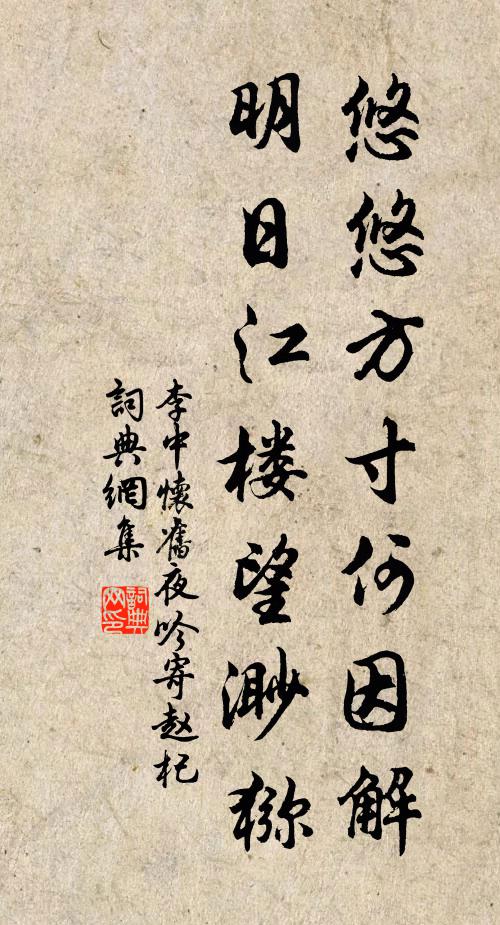 悠悠方寸何因解
明日江楼望渺猕
李中懷舊夜吟寄赵杞
詞典網集
詞典网印